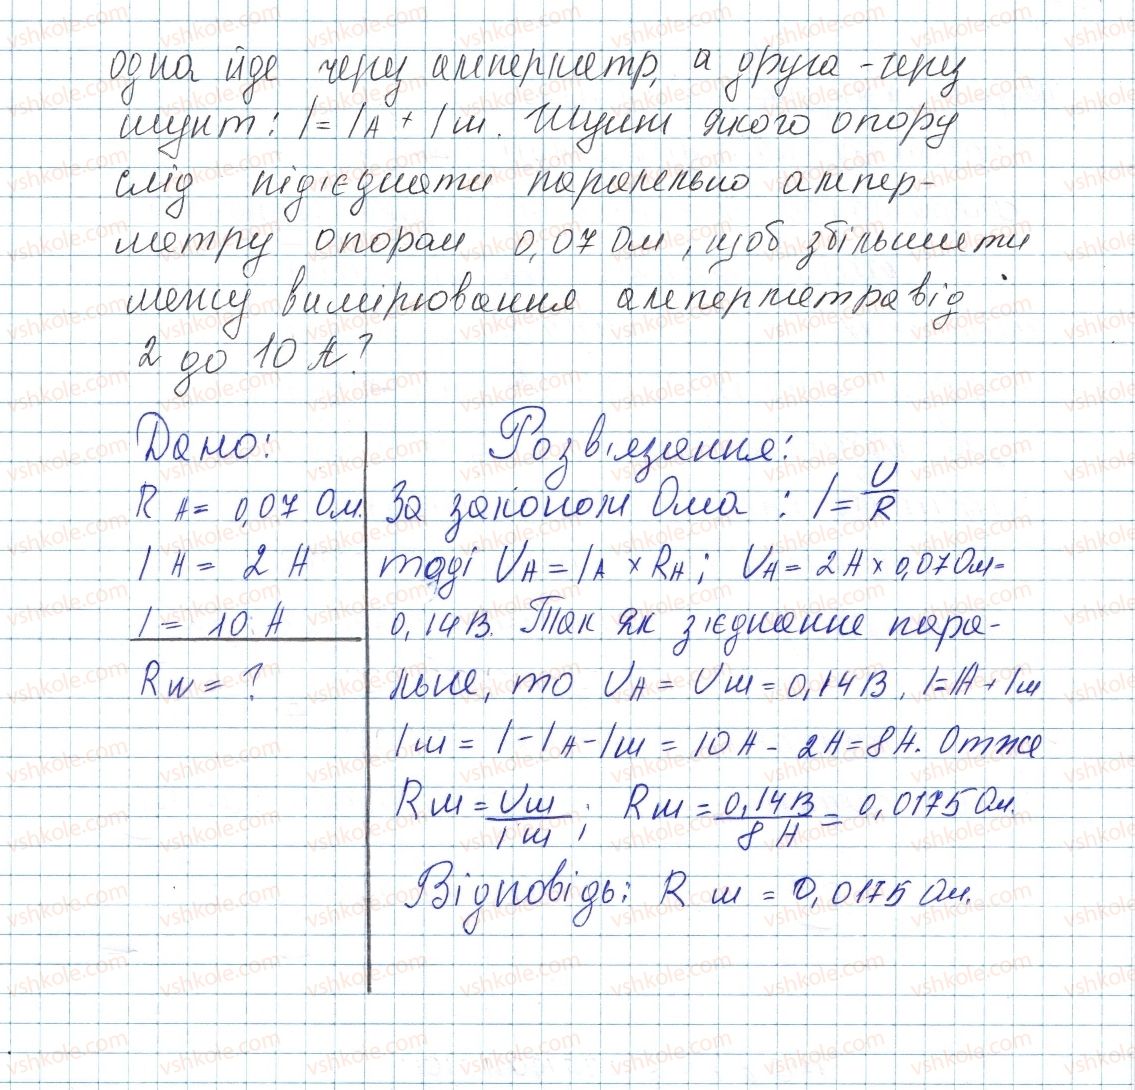 одна йде через амперметр, а друга - через
шунт: I = IА + Iш. Шунт якого опору
слід під'єднати паралельно ампер-
метру опором 0,07 Ом, щоб збільшити
межу вимірювання амперметра від
2 до 10 А?
Дано:
RА = 0,07 Ом.
IА = 2 А
I = 10 А
Rш = ?
Розв'язання:
За законом Ома : I = U/R
тоді UА = IА × RА; UА = 2А × 0,07 Ом =
0,14В. Так як з'єднання пара-
льне, то UА = Uш = 0,14В, I = IА + Iш
Iш = I - IА - Iш = 10А - 2А = 8А. Отже
Rш = Uш/Iш; Rш = 0,14В/8А = 0,0175 Ом.
Відповідь: Rш = 0,0175 Ом.
vshkole.com